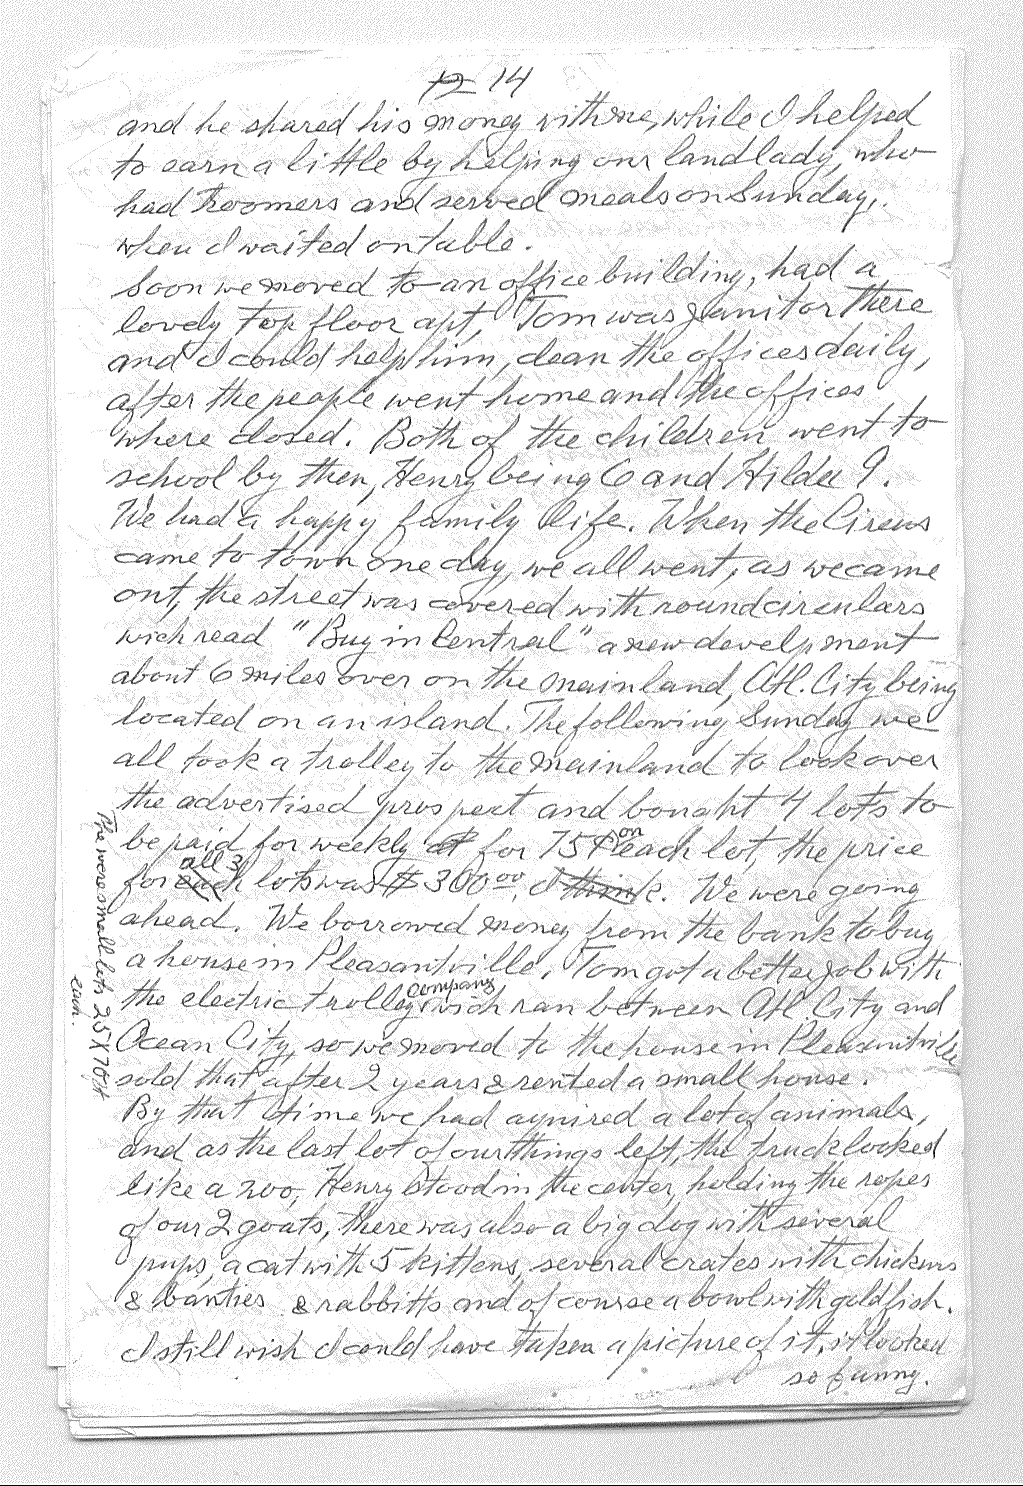 12 14
and he shared his money with me, while I helped
to earn a little by helping our landlady, who
had roomers and served meals on Sunday,
when I waited on table.
Soon we moved to an office building, had a
lovely top floor apt, Tom was janitor there
and I could help him, clean the offices daily,
after the people went home and the offices
where closed. Both of the children went to
school by then, Henry being 6 and Hilda 9.
We had a happy family life. When the Circus
came to town one day, we all went, as we came
out, the street was covered with round circulars
wich read "Buy in Central" a new develpment
about 6 miles over on the mainland, Atl. City being
located on an island. The following Sunday we
all took a trolley to the mainland to look over
the advertised prospect and bought 4 lots to
be paid for weekly at for 75¢ on each lot, the price
for each all 3 lots was $300.00, I think. We were going
ahead. We borrowed money from the bank to buy
a house in Pleasantville, Tom got a better job with
the electric trolley company wich ran between Atl. City and
Ocean City, so we moved to the house in Pleasantville
sold that after 2 years & rented a small house.
By that time we had aquired a lot of animals,
and as the last lot of our things left, the truck looked
like a zoo, Henry stood in the center, holding the ropes
of our 2 goats, there was also a big dog with several
pups, a cat with 5 kittens, several crates with chickens
& banties & rabbitts and of course a bowl with goldfish.
I still wish I could have taken a picture of it, it looked
so funny.
The were small lots 25 X 70 ft
each.